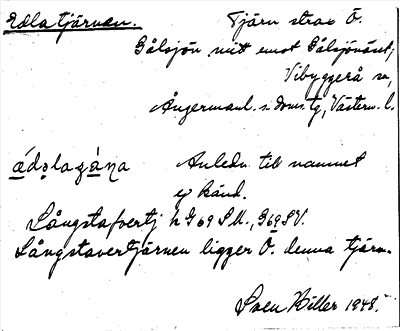 Edlatjärnen. Tjärn strax Ö.
Gålsjön mitt emot Gålsjönäset,
Vibyggerå sn,
Ångermanl. s. doms. tg, Västern. l.
Anledn. till namnet
ej känd.
Långstafvertj h G 69 S.M., G 69 SV.
Långstavertjärnen ligger Ö. denna tjärn.
Sven Hiller 1948.